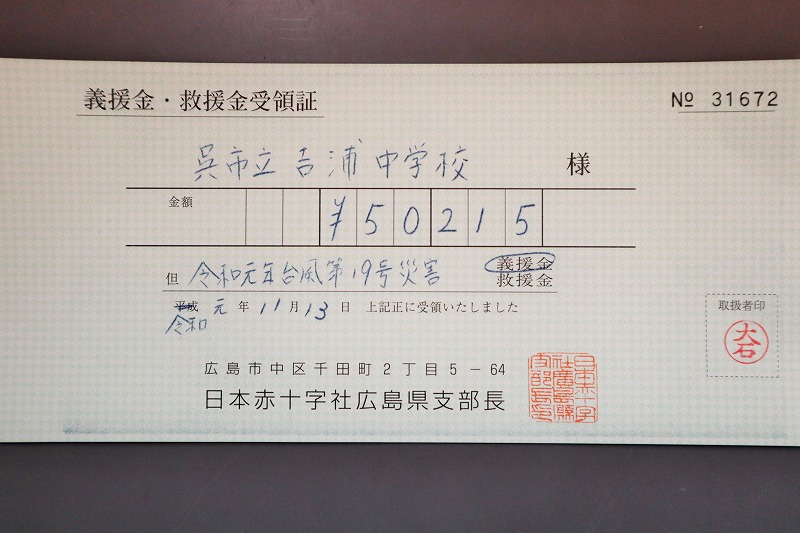 義援金・救援金受領証
№ 31672
呉市立吉浦中学校 様
金額 ¥50215
但 令和元年台風第19号災害 義援金
救援金
平成 元年 11月 13日 上記正に受領いたしました
令和
取扱者印
大石
広島市中区千田町2丁目5-64
日本赤十字社広島県支部長